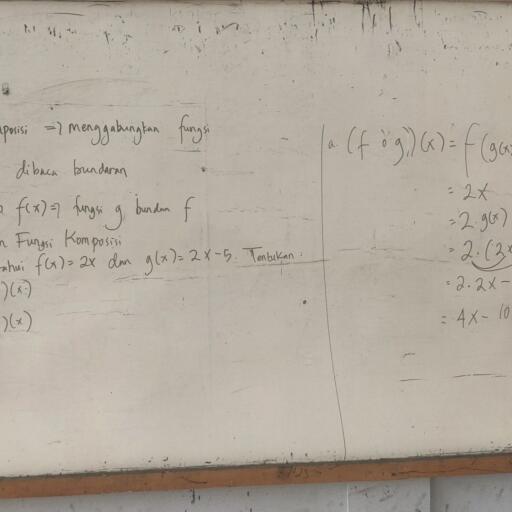 posisi => menggabungkan fungsi
dibaca bundaran
f(x) => fungsi g bundan f
n Fungsi Komposisi
ahui f(x) = 2x dan g(x) = 2x-5. Tentukan.
)(x)
)(x)
a. (f o g)(x) = f(g(x
= 2x
= 2.g(x)
= 2.(2x
= 2.2x-
= 4x - 10